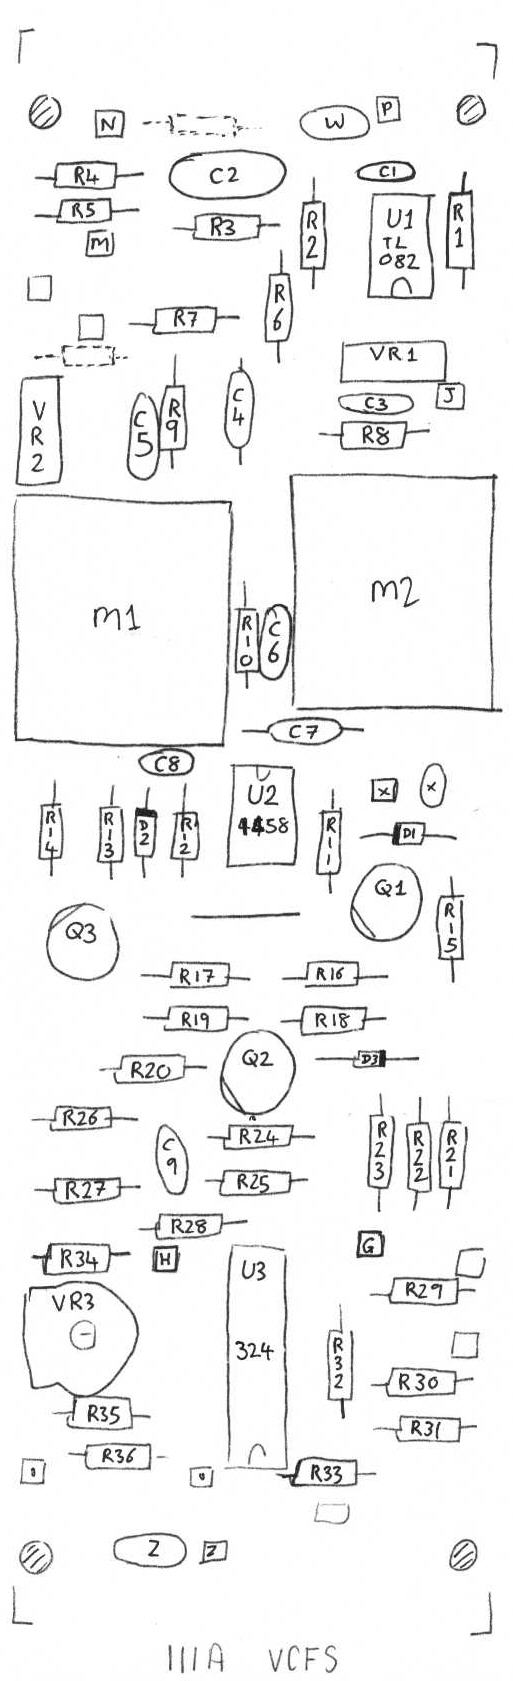 N
W
P
R4
C2
C1
R5
R3
R2
U1
TL
082
R1
M
R6
R7
VR1
J
VR2
C5
R9
C4
C3
R8
M1
M2
R10
C6
C7
C8
U2
4458
X
X
R14
R13
D2
R12
R11
D1
Q1
Q3
R15
R17
R16
R19
R18
R20
Q2
D3
R26
C9
R24
R23
R22
R21
R27
R25
R28
R34
H
G
VR3
U3
324
R29
R32
R30
R35
R31
R36
R33
Z
Z
111A VCFS